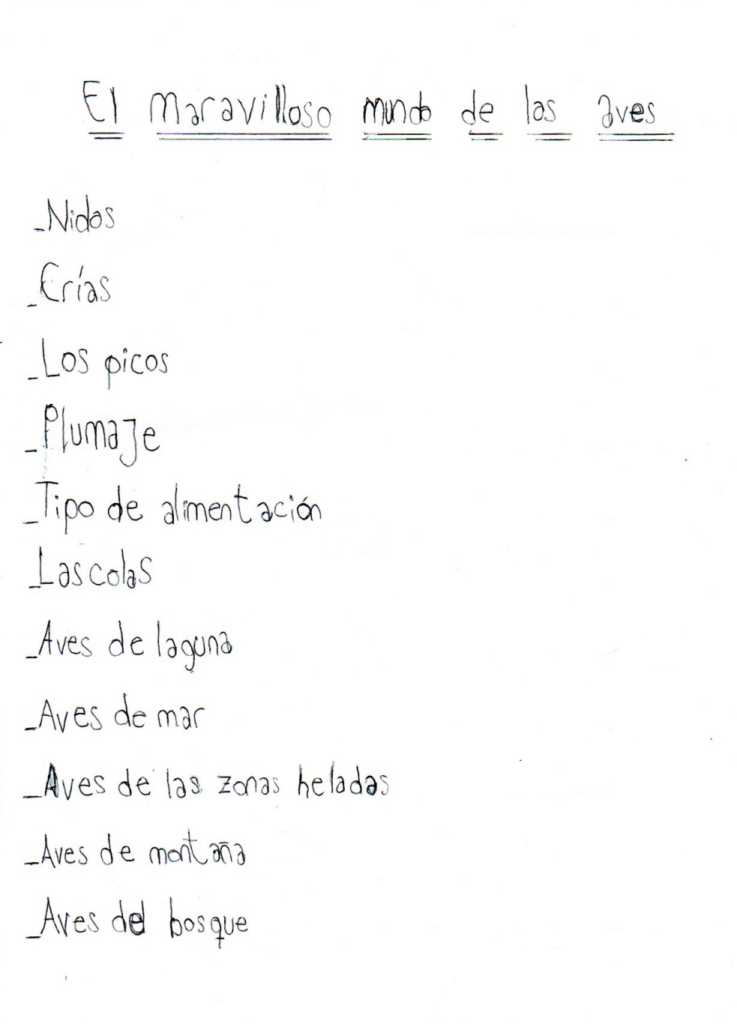 El maravilloso mundo de las aves
_Nidos
_Crías
_Los picos
_Plumaje
_Tipo de alimentación
_Las colas
_Aves de laguna
_Aves de mar
_Aves de las zonas heladas
_Aves de montaña
_Aves del bosque